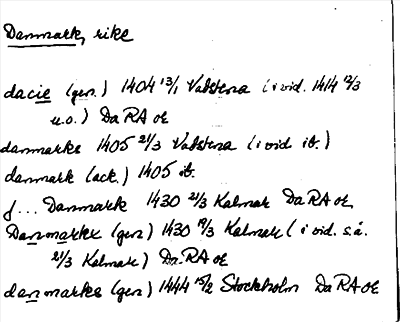 Danmark, rike
dacie (gen.) 1404 13/1 Vadstena (i vid. 1414 12/3
u.o.) Da RA or
danmarks 1405 21/3 Vadstena (i vid ib.)
danmark (ack.) 1405 ib.
j... Danmark 1430 21/3 Kalmar Da RA or,
Danmarkx (gen) 1430 19/3 Kalmar (i vid. s.å.
21/3 Kalmar) Da RA or
danmarks (gen) 1444 15/2 Stockholm Da RA or